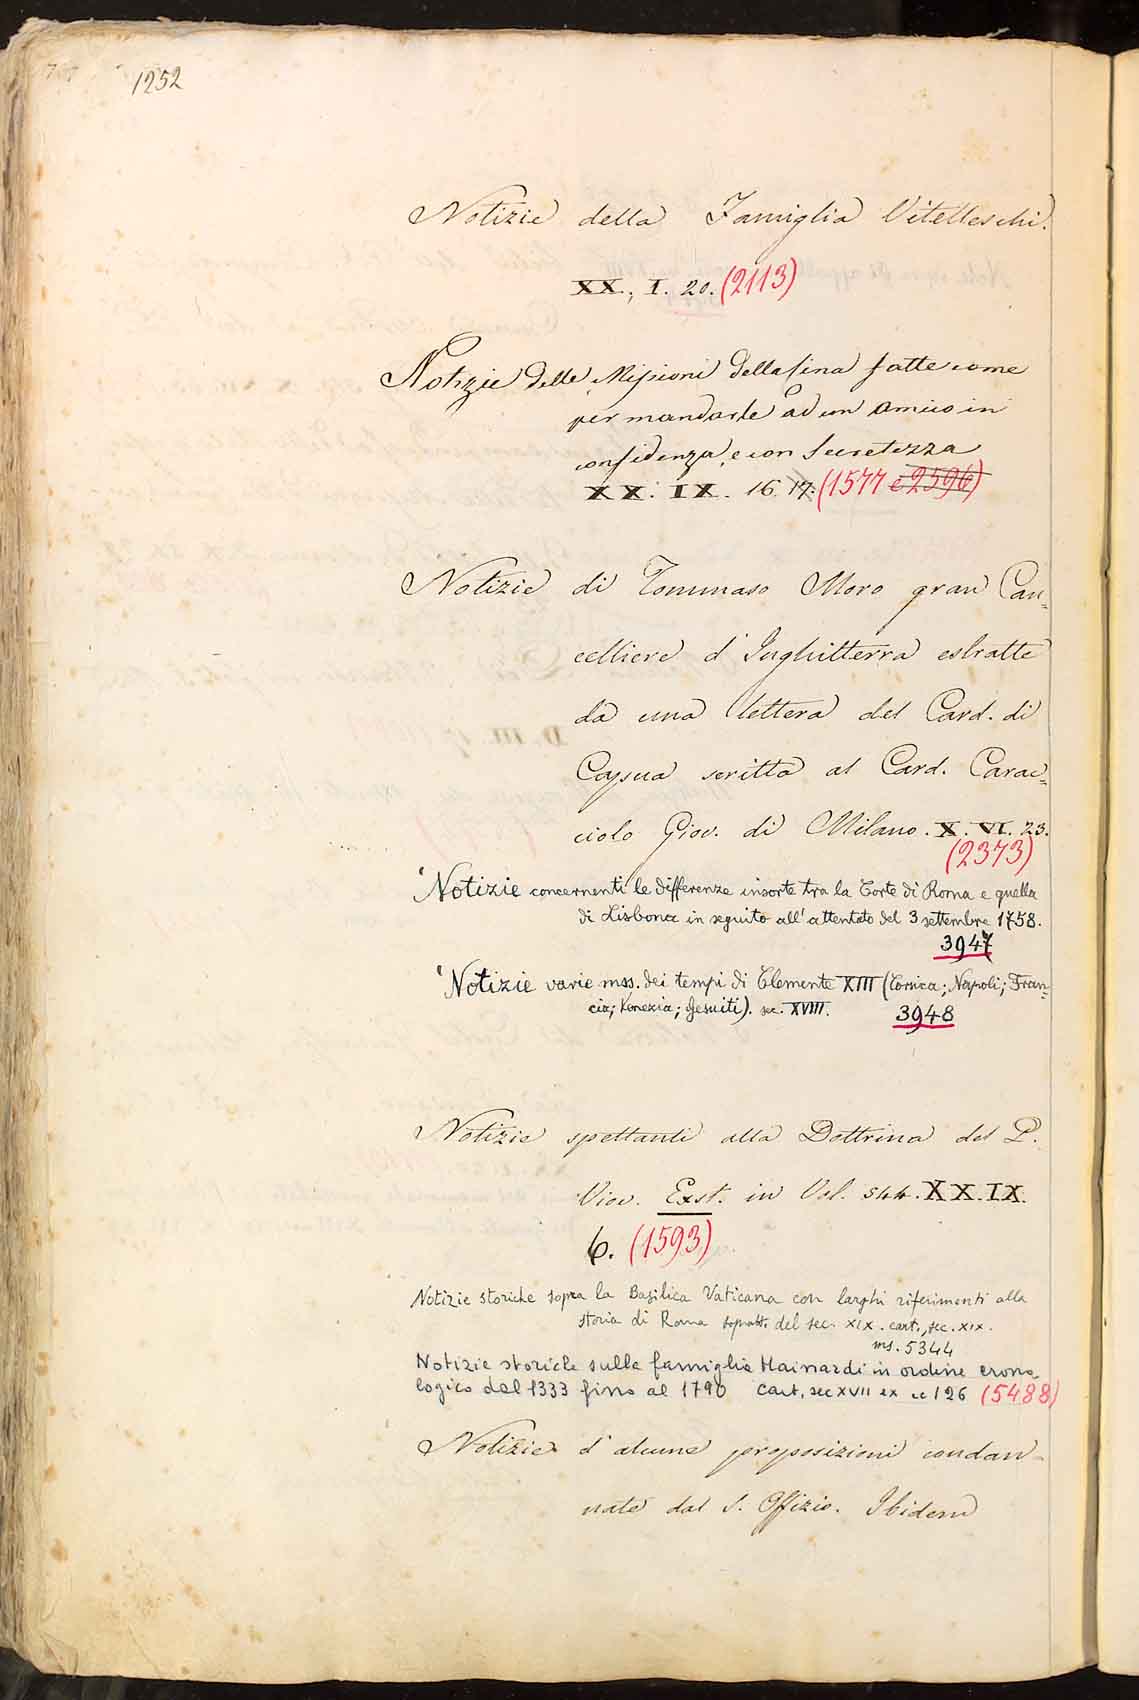 1252
Notizie della Famiglia Vitelleschi.
XX. I. 20. (2113)
Notizie delle Missioni della Cina fatte come
per mandarle ad un Amico in
confidenza, e con Secretezza
XX. IX. 16. 17. (1577 e 2596)
Notizie di Tommaso Moro gran Can=
celliere d'Inghilterra estratte
da una lettera del Card. di
Capua scritta al Card. Carac=
ciolo Giov. di Milano. X. VI. 23.
(2373)
Notizie concernenti le differenze insorte tra la Corte di Roma e quella
di Lisbona in seguito all'attentato del 3 settembre 1758.
3947
Notizie varie mss. dei tempi di Clemente XIII (Corsica; Napoli; Fran=
cia; Venezia; Gesuiti). sec. XVIII. 3948
Notizie spettanti alla Dottrina del P.
Viov. Exst. in Vol. 544. XX. IX.
6. (1593)
Notizie storiche sopra la Basilica Vaticana con larghi riferimenti alla
storia di Roma sopratt. del sec. XIX. cart., sec. XIX.
ms. 5344
Notizie storiche sulla famiglia Mainardi in ordine crono-
logico dal 1333 fino al 1790 Cart. sec XVII ex cc 126 (5488)
Notizie d'alcune proposizioni condan-
nate dal S. Offizio. Ibidem